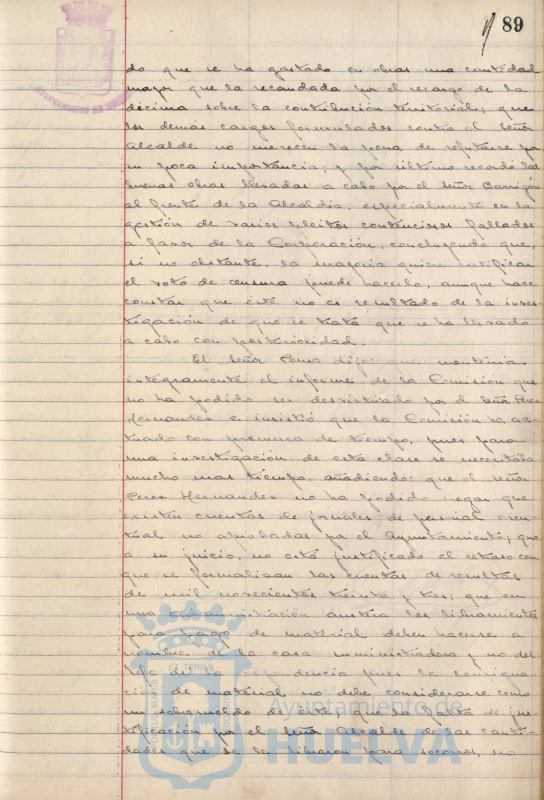 89
do que se ha gastado en obras una cantidad
mayor que la recaudada por el recargo de la
décima sobre la contribución territorial; que
los demás cargos formulados contra el Señor
Alcalde no merecen la pena de refutarse por
su poca importancia, y por último recordó las
buenas obras llevadas a cabo por el Señor Barrigón
al frente de la Alcaldía, especialmente en la
gestión de varios pleitos contenciosos fallados
a favor de la Corporación, concluyendo que,
si no obstante, la mayoría quiere ratificar
el voto de censura puede hacerlo, aunque hace
constar que éste no es resultado de la inves-
tigación de que se trata que se ha llevado
a cabo con posterioridad.
El Señor dijo: que mantenía
integramente el informe de la Comisión que
no ha podido ser desvirtuado por el Señor Perez
Hernandez e insistió que la Comisión ha ac-
tuado con premura de tiempo, pues para
una investigación de esta clase se necesitaba
mucho mas tiempo, añadiendo: que el Señor
Perez Hernandez no ha podido negar que
existen cuentas de jornales de personal even-
tual no aprobadas por el Ayuntamiento; que
a su juicio, no está justificado el retraso con
que se formalizan las cuentas de resultas
de mil novecientos treinta y tres; que en
una administración austera los libramientos
para pago de material deben hacerse a
nombre de la casa suministradora y no del
Jefe de la dependencia pues la consigna-
ción de material no debe considerarse como
un sobresueldo de éste; que la falta de jus-
tificación por el Señor Alcalde de las canti-
dades que se le libraron para socorros, no
Ayuntamiento de
HUELVA